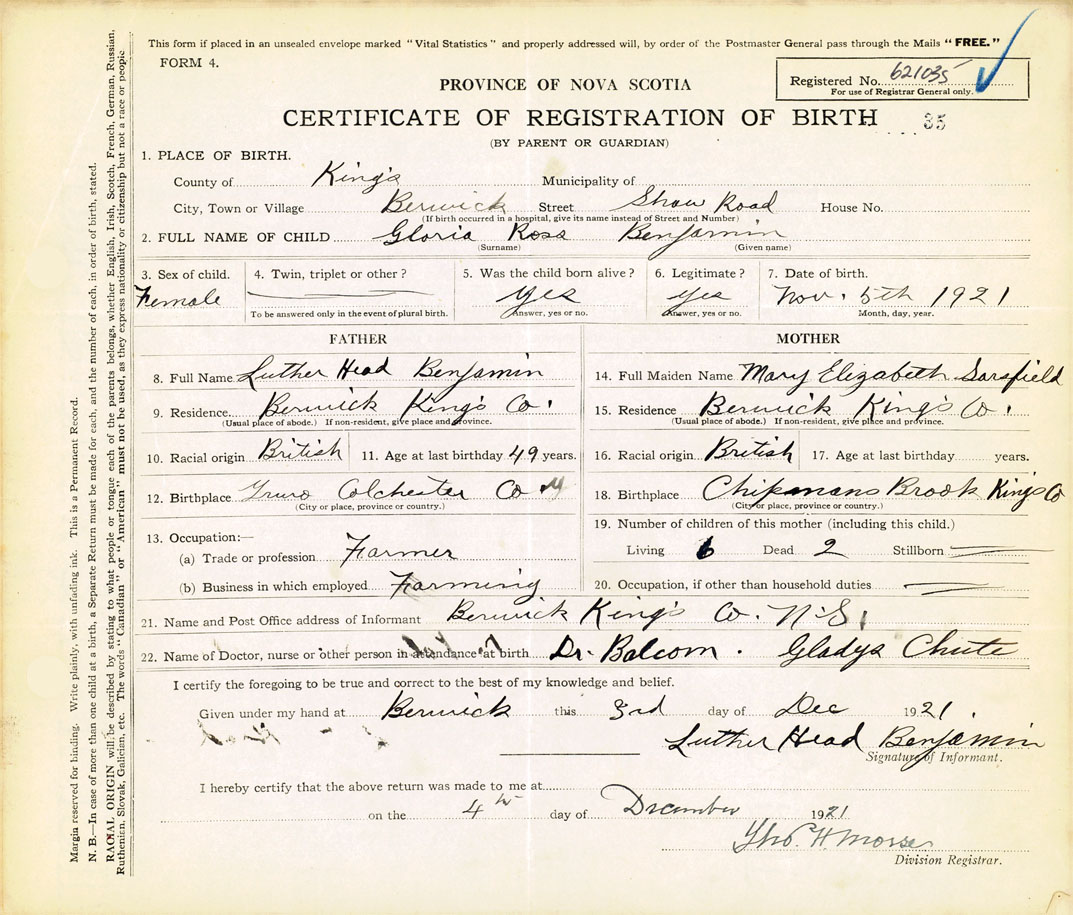 This form if placed in an unsealed envelope marked "Vital Statistics" and properly addressed will, by order of the Postmaster General pass through the Mails "FREE."
FORM 4.
Registered No. 621035
For use of Registrar General only.
PROVINCE OF NOVA SCOTIA
CERTIFICATE OF REGISTRATION OF BIRTH 35
(BY PARENT OR GUARDIAN)
1. PLACE OF BIRTH.
County of King's Municipality of
City, Town or Village Berwick Street Shaw Road House No.
(If birth occurred in a hospital, give its name instead of Street and Number)
2. FULL NAME OF CHILD Gloria Rosa Benjamin
(Surname) (Given name)
3. Sex of child. 4. Twin, triplet or other? 5. Was the child born alive? 6. Legitimate? 7. Date of birth.
Female Yes Yes Nov. 5th 1921
To be answered only in the event of plural birth. Answer, yes or no. Answer, yes or no. Month, day, year.
FATHER MOTHER
8. Full Name Luther Head Benjamin 14. Full Maiden Name Mary Elizabeth Sarsfield
9. Residence Berwick King's Co. 15. Residence Berwick King's Co.
(Usual place of abode.) If non-resident, give place and province. (Usual place of abode.) If non-resident, give place and province.
10. Racial origin British 11. Age at last birthday 49 years. 16. Racial origin British 17. Age at last birthday years.
12. Birthplace Truro Colchester Co 18. Birthplace Chipmans Brook King's Co
(City or place, province or country.) (City or place, province or country.)
13. Occupation:— 19. Number of children of this mother (including this child.)
(a) Trade or profession Farmer Living 6 Dead 2 Stillborn
(b) Business in which employed Farming 20. Occupation, if other than household duties
21. Name and Post Office address of Informant Berwick King's Co. N.S.
22. Name of Doctor, nurse or other person in attendance at birth Dr. Balcom. Gladys Chute
I certify the foregoing to be true and correct to the best of my knowledge and belief.
Given under my hand at Berwick this 3rd day of Dec 1921.
Luther Head Benjamin
Signature of Informant.
I hereby certify that the above return was made to me at
on the 4th day of December 1921
Tho. H Morse
Division Registrar.
Margin reserved for binding. Write plainly, with unfading ink. This is a Permanent Record.
N. B.—In case of more than one child at a birth, a Separate Return must be made for each, and the number of each, in order of birth, stated.
RACIAL ORIGIN will be described by stating to what people or tongue each of the parents belongs, whether English, Irish, Scotch, French, German, Russian,
Ruthenian, Slovak, Galician, etc. The words "Canadian" or "American" must not be used, as they express nationality or citizenship but not a race or people